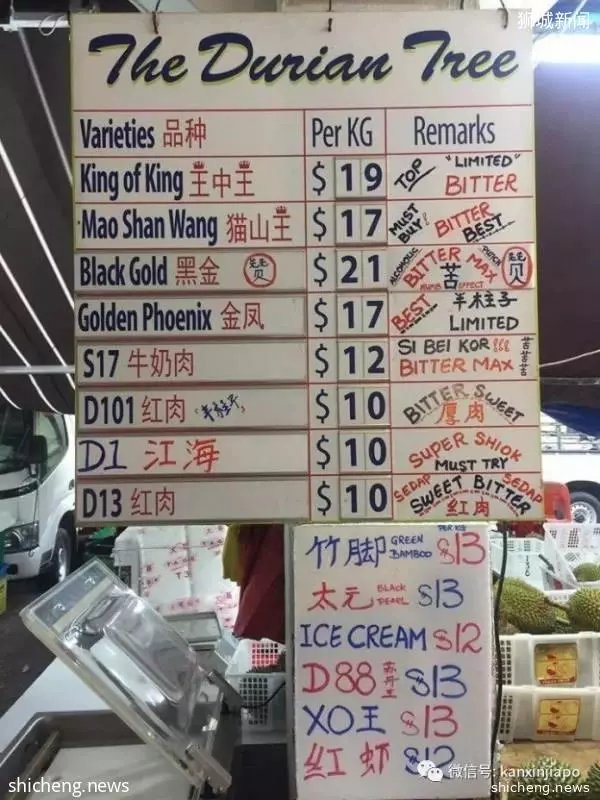 狮城新闻
The Durian Tree
Varieties 品种 Per KG Remarks
King of King 王中王 $19 TOP "LIMITED" BITTER
Mao Shan Wang 猫山王 $17 MUST BUY! BITTER BEST
Black Gold 黑金 $21 ALCOHOLIC BITTER MAX 苦 NUMB EFFECT
Golden Phoenix 金凤 $17 BEST 羊木柱子 LIMITED
S17 牛奶肉 $12 SI BEI KOR!!! BITTER MAX 苦苦苦
D101 红肉 $10 BITTER SWEET 厚肉
D1 江海 $10 SUPER SHIOK MUST TRY
D13 红肉 $10 SEDAP SWEET BITTER SEDAP 红肉
PER KG
竹脚 GREEN BAMBOO $13
太元 BLACK PEARL $13
ICE CREAM $12
D88 苏丹王 $13
XO王 $13
红虾 $12
微信号: kanxinjiapo
shicheng.news
shicheng.news